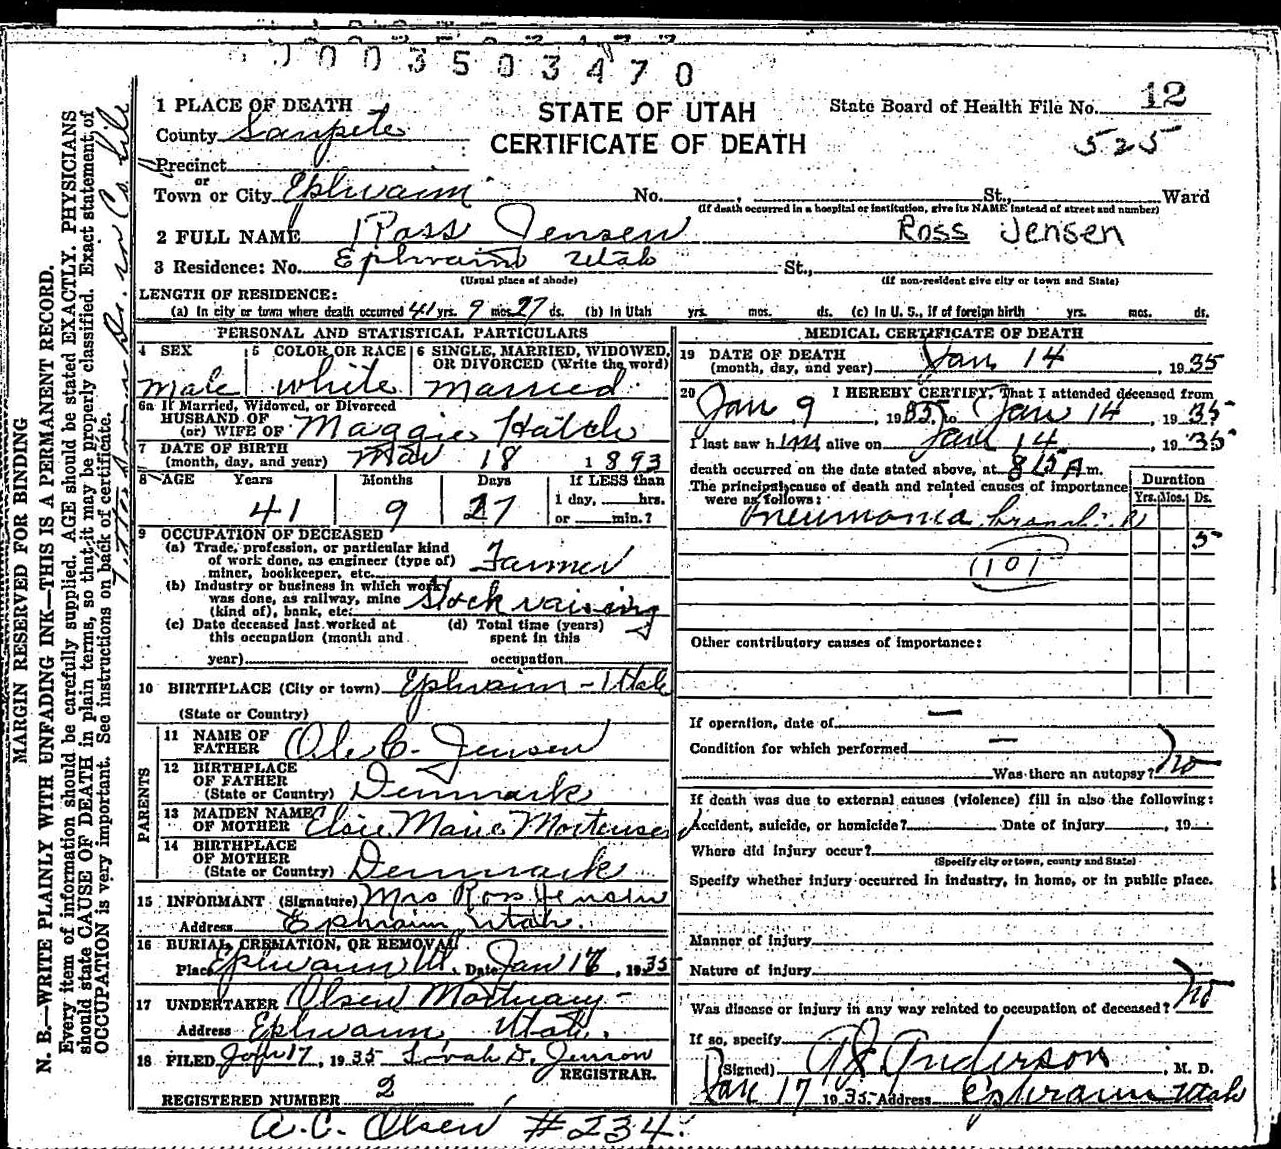 0003503470
1 PLACE OF DEATH
County Sanpete
Precinct
or
Town or City Ephraim No. , St., Ward
(If death occurred in a hospital or institution, give its NAME instead of street and number)
STATE OF UTAH
CERTIFICATE OF DEATH
State Board of Health File No. 12
525
2 FULL NAME Ross Jensen Ross Jensen
3 Residence: No. Ephraim Utah St.,
(Usual place of abode) (If non-resident give city or town and State)
LENGTH OF RESIDENCE:
(a) In city or town where death occurred 41 yrs. 9 mos. 27 ds. (b) In Utah yrs. mos. ds. (c) In U. S., if of foreign birth yrs. mos. ds.
PERSONAL AND STATISTICAL PARTICULARS
4 SEX 5 COLOR OR RACE 6 SINGLE, MARRIED, WIDOWED,
OR DIVORCED (Write the word)
Male white Married
6a If Married, Widowed, or Divorced
HUSBAND OF
(or) WIFE OF Maggie Hatch
7 DATE OF BIRTH
(month, day, and year) Mar 18 1893
8 AGE Years Months Days If LESS than
1 day, hrs.
or min.?
41 9 27
9 OCCUPATION OF DECEASED
(a) Trade, profession, or particular kind
of work done, as engineer (type of)
miner, bookkeeper, etc. Farmer
(b) Industry or business in which work
was done, as railway, mine
(kind of), bank, etc. Stock raising
(c) Date deceased last worked at
this occupation (month and
year)
(d) Total time (years)
spent in this
occupation
10 BIRTHPLACE (City or town) Ephraim - Utah
(State or Country)
PARENTS
11 NAME OF
FATHER Ole C. Jensen
12 BIRTHPLACE
OF FATHER
(State or Country) Denmark
13 MAIDEN NAME
OF MOTHER Elsie Marie Mortensen
14 BIRTHPLACE
OF MOTHER
(State or Country) Denmark
15 INFORMANT (Signature) Mrs Ross Jensen
Address Ephraim Utah.
16 BURIAL, CREMATION, OR REMOVAL
Place Ephraim Ut. Date Jan 18, 1935
17 UNDERTAKER Olsen Mortuary -
Address Ephraim, Utah.
18 FILED Jan 17, 1935 D. Jenson
REGISTRAR.
REGISTERED NUMBER 2
MEDICAL CERTIFICATE OF DEATH
19 DATE OF DEATH
(month, day, and year) Jan 14, 1935
20 I HEREBY CERTIFY, That I attended deceased from
Jan 9 1935, to Jan 14, 1935
I last saw him alive on Jan 14 1935
death occurred on the date stated above, at 8 15 A m.
The principal cause of death and related causes of importance
were as follows:
Duration
Yrs. Mos. Ds.
Pneumonia
5
(107)
Other contributory causes of importance:
If operation, date of —
Condition for which performed —
Was there an autopsy? no
If death was due to external causes (violence) fill in also the following:
Accident, suicide, or homicide? Date of injury , 19
Where did injury occur?
(Specify city or town, county and State)
Specify whether injury occurred in industry, in home, or in public place.
Manner of injury
Nature of injury
Was disease or injury in any way related to occupation of deceased? no
If so, specify
(Signed) Anderson, M. D.
Jan 17 1935 Address Ephraim Utah
A.C. Olsen #234.
MARGIN RESERVED FOR BINDING
N. B.—WRITE PLAINLY WITH UNFADING INK—THIS IS A PERMANENT RECORD.
Every item of information should be carefully supplied. AGE should be stated EXACTLY. PHYSICIANS
should state CAUSE OF DEATH in plain terms, so that it may be properly classified. Exact statement of
OCCUPATION is very important. See instructions on back of certificate.